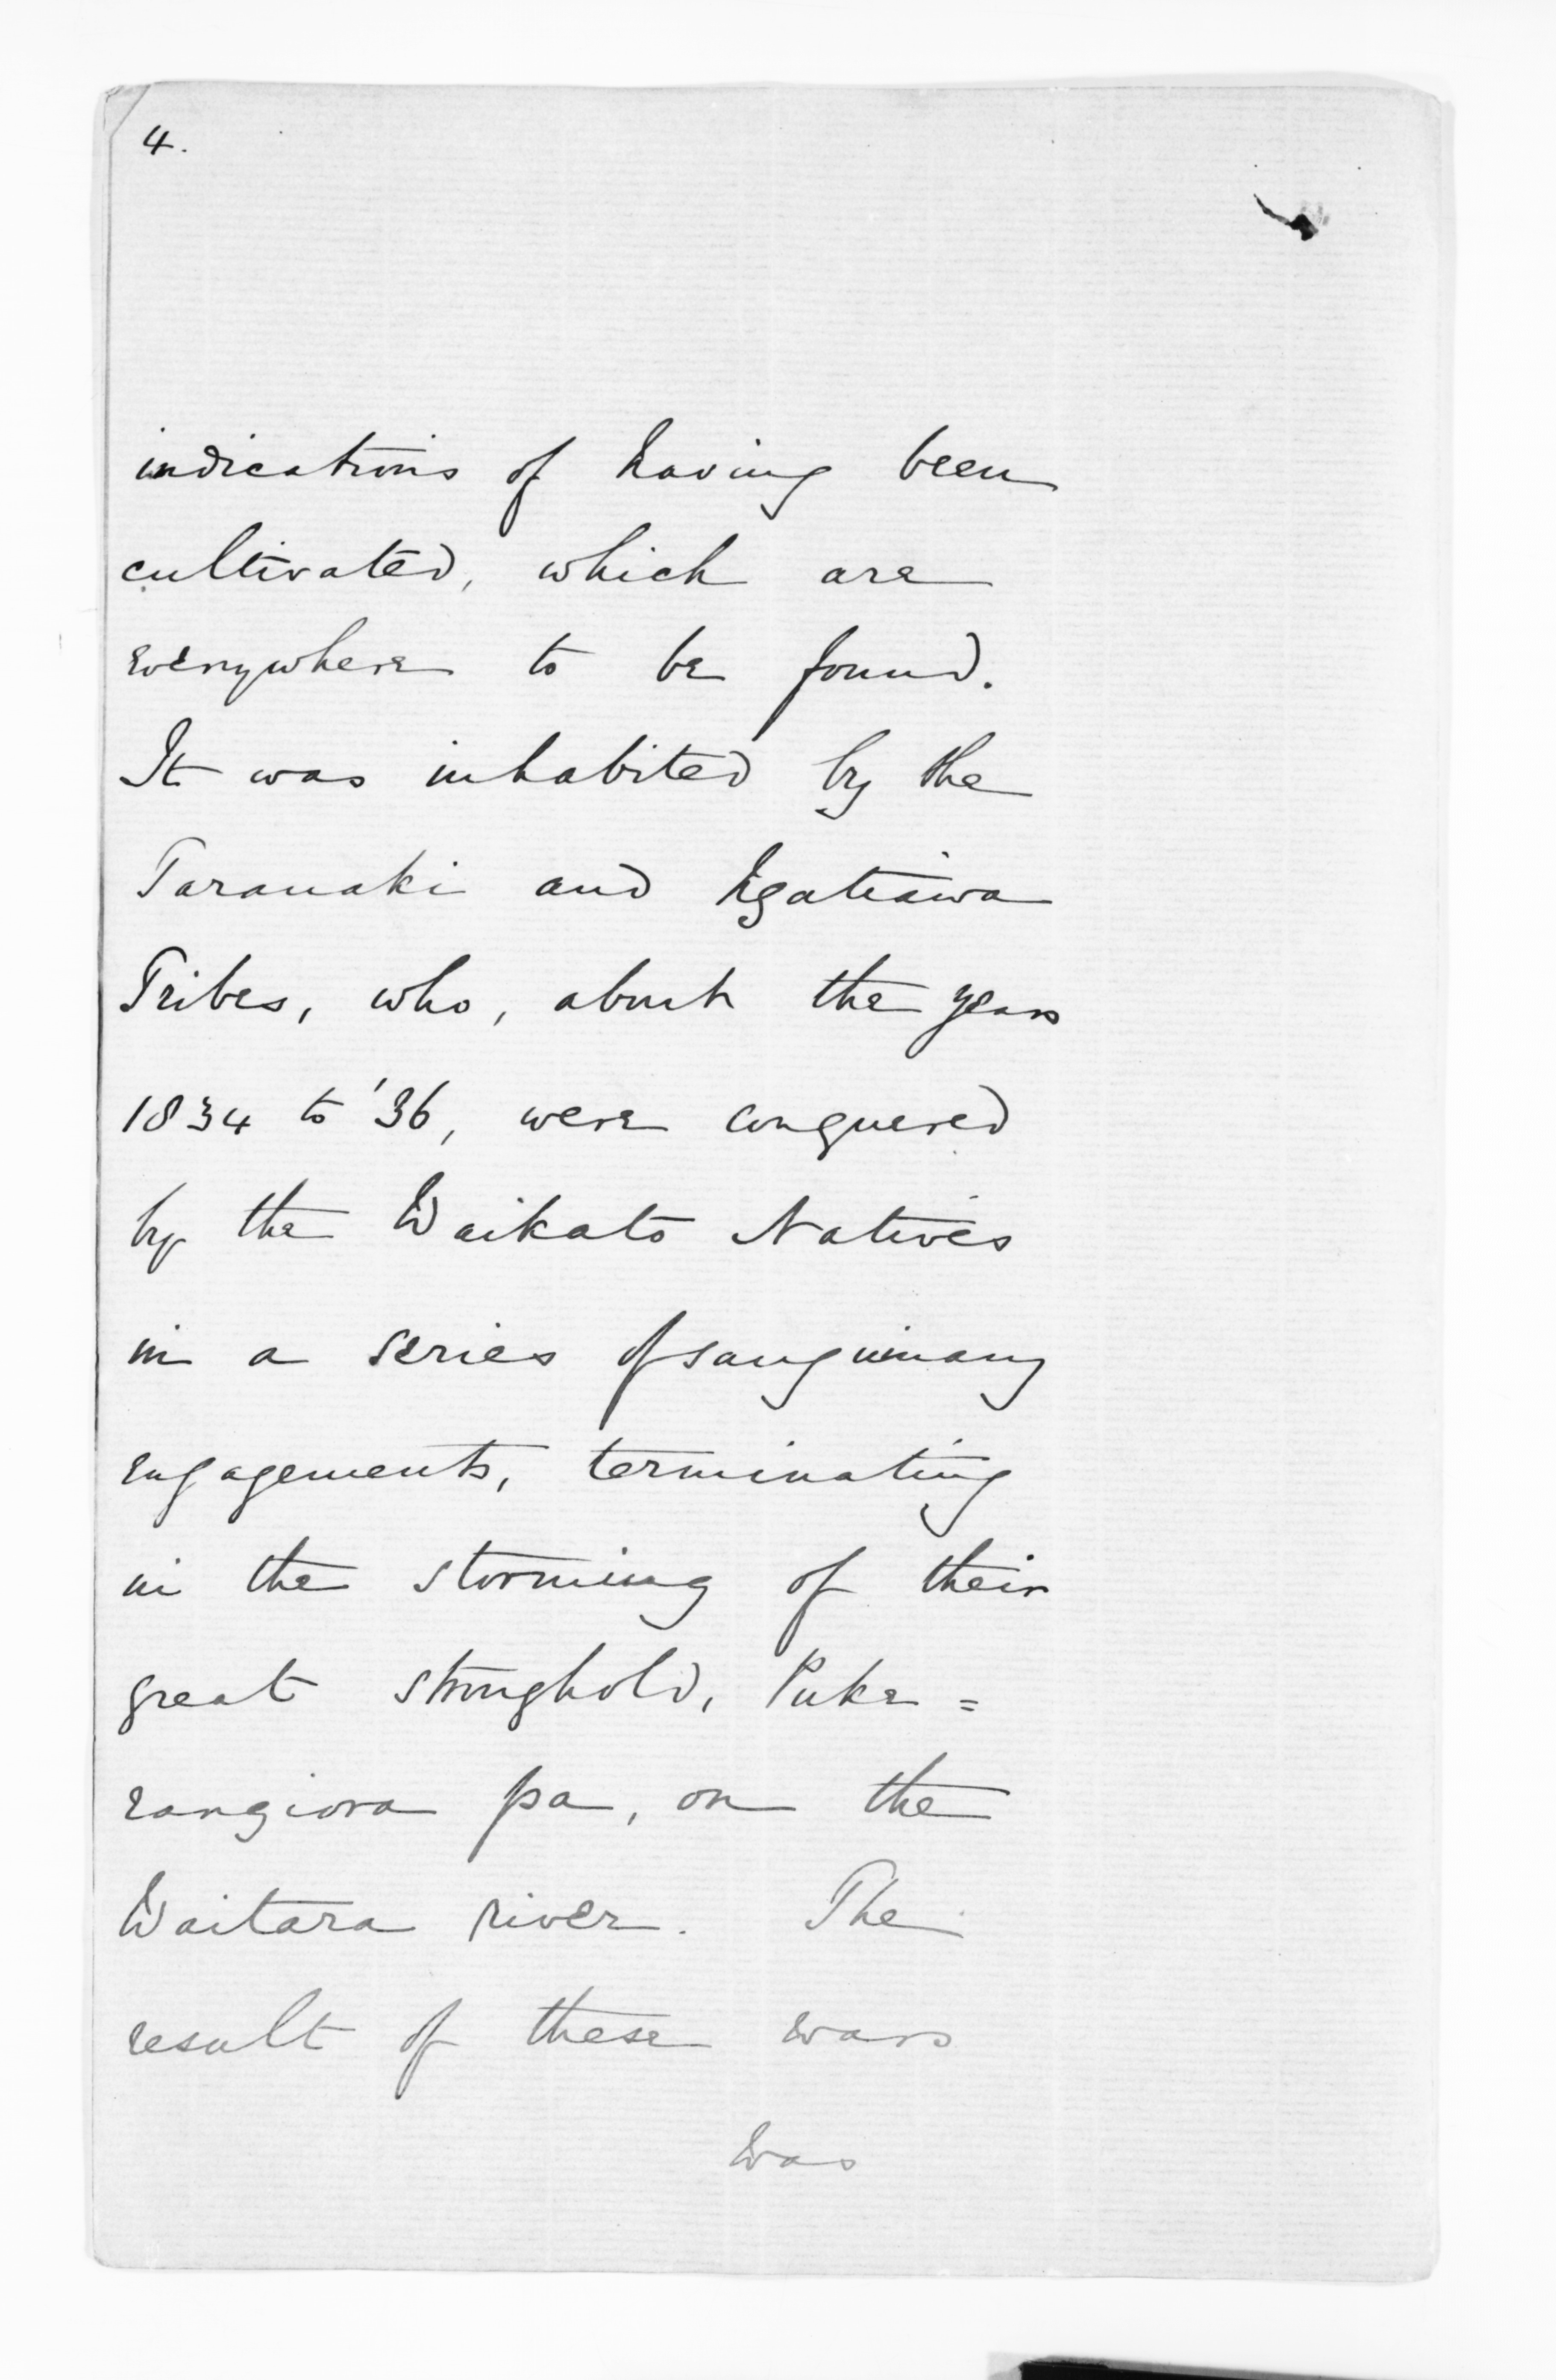 4.
indications of having been
cultivated, which are
everywhere to be found.
It was inhabited by the
Taranaki and Ngatiawa
Tribes, who, about the years
1834 to '36, were conquered
by the Waikato Natives
in a series of sanguinary
engagements, terminating
in the storming of their
great stronghold, Puke=
rangiora pa, on the
Waitara river. The
result of these wars
was